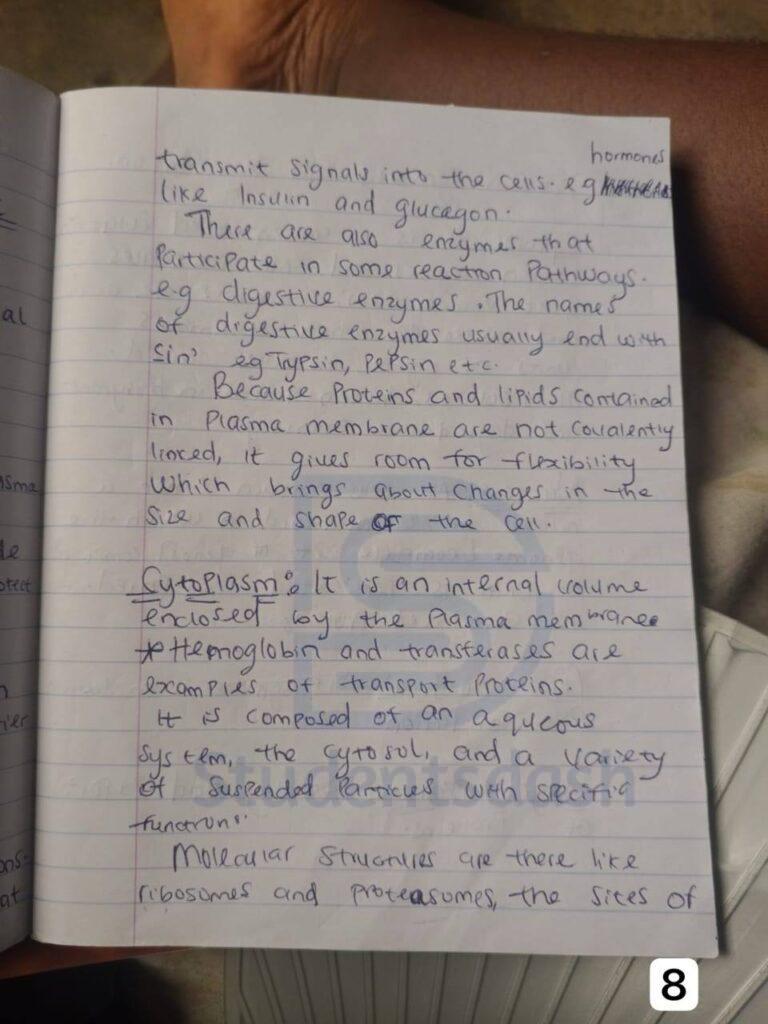 hormones
transmit signals into the cells. e g
like Insulin and glucagon.
There are also enzymes that
Participate in some reaction Pathways.
e.g digestive enzymes. The names
of digestive enzymes usually end with
sin' eg Typsin, Pepsin etc.
Because Proteins and lipids contained
in Plasma membrane are not Covalently
linced, it gives room for flexibility
Which brings about Changes in the
Size and shape of the cell.
Cytoplasm: It is an internal volume
enclosed by the Plasma membrane
* Hemoglobin and transferases are
examples of transport Proteins.
It is composed of an aqueous
System, the cytosol, and a variety
of Suspended Particles with specific
functions.
Molecular Structures are there like
ribosomes and proteasomes, the sites of
Studentsdash
al
asma
de
otect
n
rier
ons-
at
8